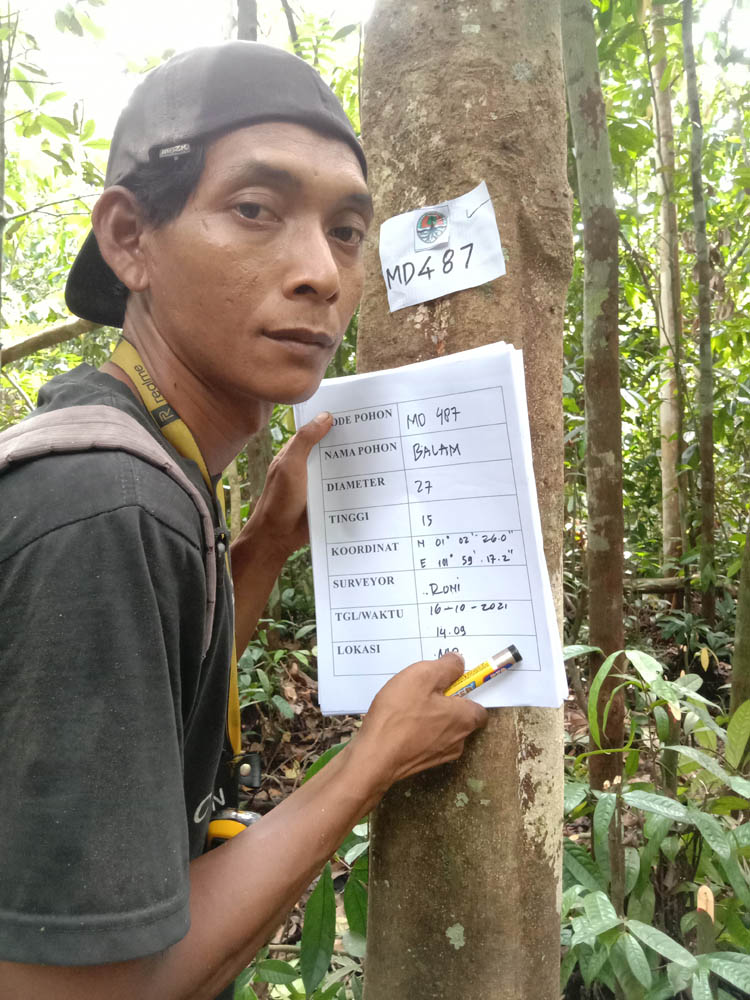 MD487
realme
KODE POHON MD 487
NAMA POHON BALAM
DIAMETER 27
TINGGI 15
KOORDINAT N 01° 02'. 26.0"
E 101° 59'. 17.2"
SURVEYOR RONI
TGL/WAKTU 16-10-2021
14.09
LOKASI